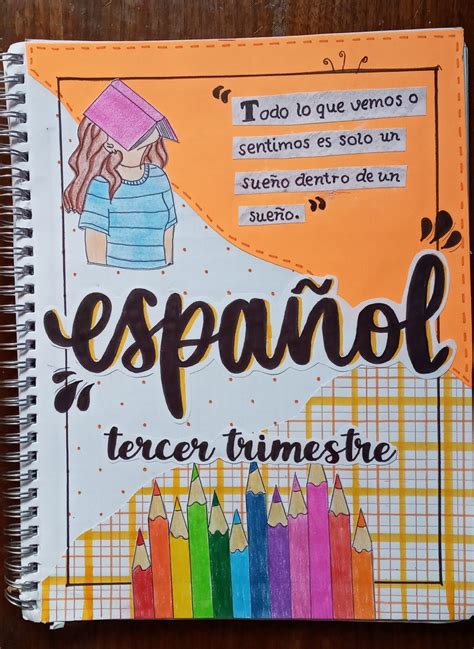 "Todo lo que vemos o
sentimos es solo un
sueño dentro de un
sueño."
español
tercer trimestre